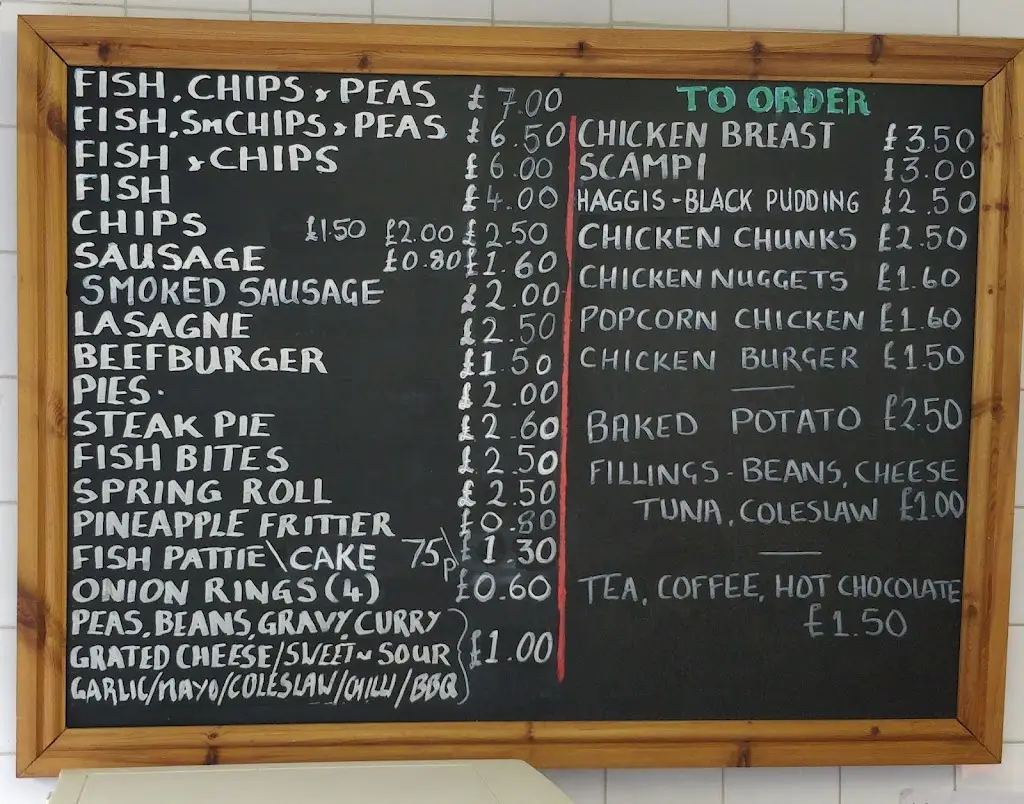 FISH, CHIPS & PEAS £7.00
FISH, Sm CHIPS & PEAS £6.50
FISH & CHIPS £6.00
FISH £4.00
CHIPS £1.50 £2.00 £2.50
SAUSAGE £0.80 £1.60
SMOKED SAUSAGE £2.00
LASAGNE £2.50
BEEFBURGER £1.50
PIES. £2.00
STEAK PIE £2.60
FISH BITES £2.50
SPRING ROLL £2.50
PINEAPPLE FRITTER £0.80
FISH PATTIE\CAKE 75p\ £1.30
ONION RINGS (4) £0.60
PEAS, BEANS, GRAVY, CURRY
GRATED CHEESE/SWEET~SOUR £1.00
GARLIC/MAYO/COLESLAW/CHILLI/BBQ
TO ORDER
CHICKEN BREAST £3.50
SCAMPI £3.00
HAGGIS - BLACK PUDDING £2.50
CHICKEN CHUNKS £2.50
CHICKEN NUGGETS £1.60
POPCORN CHICKEN £1.60
CHICKEN BURGER £1.50
BAKED POTATO £2.50
FILLINGS - BEANS, CHEESE
TUNA, COLESLAW £1.00
TEA, COFFEE, HOT CHOCOLATE
£1.50